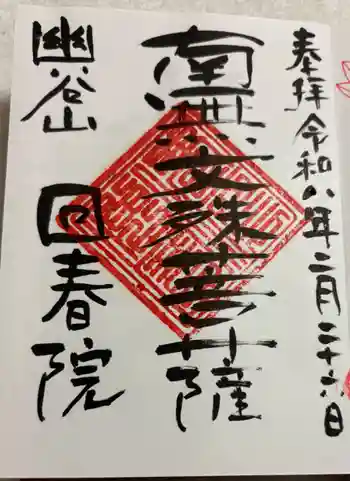 奉拝 令和八年二月二十六日
南無文殊菩薩
幽谷山
回春院